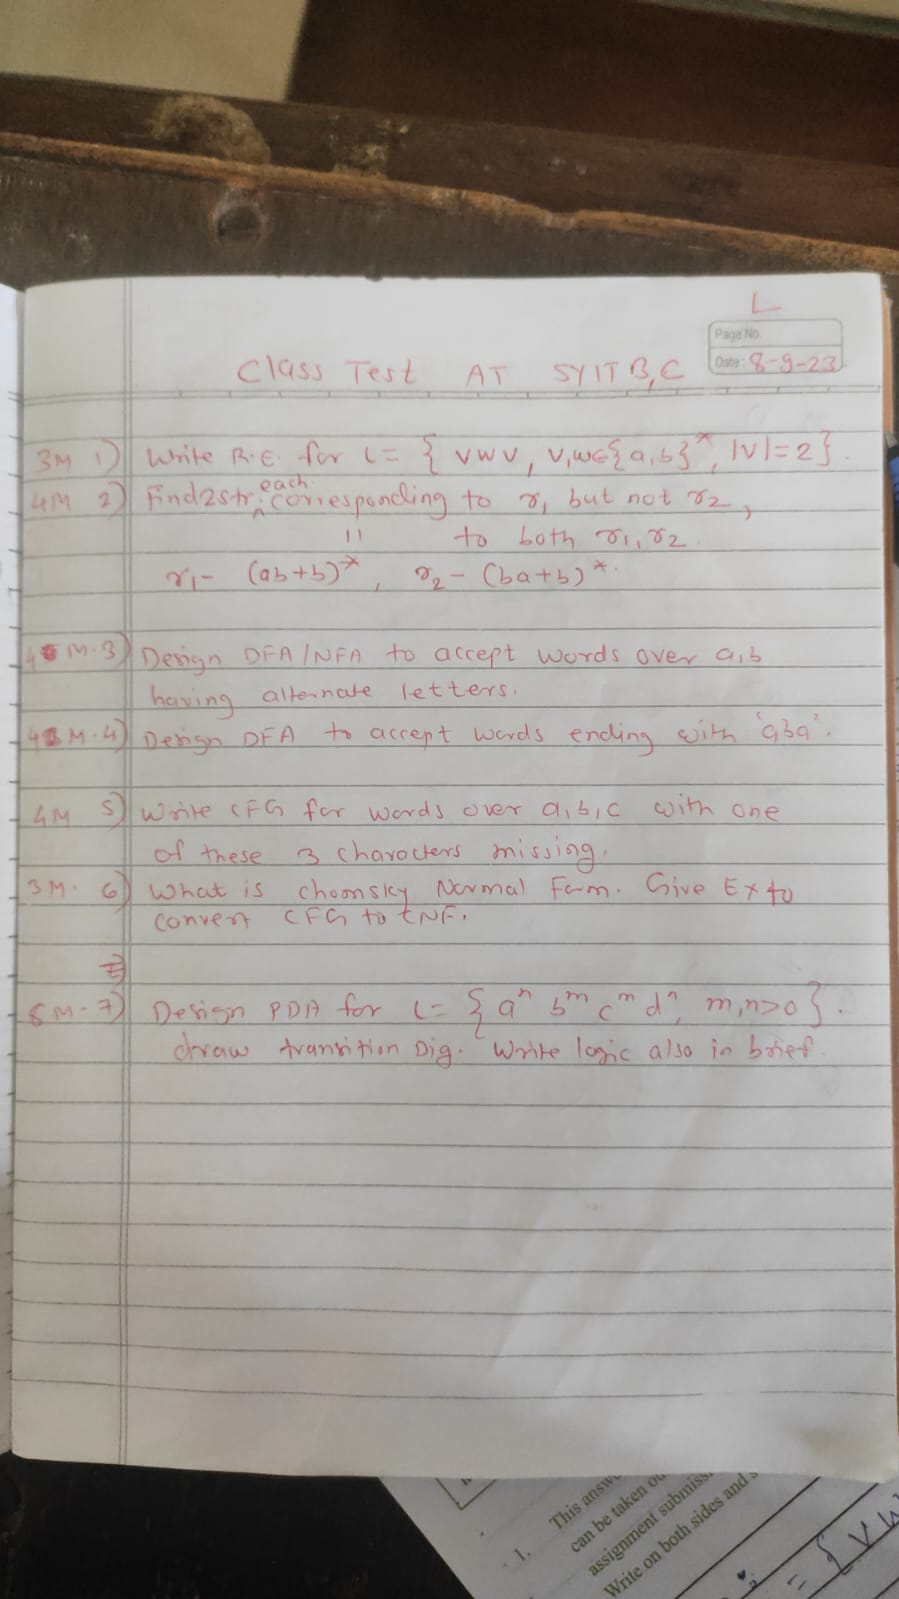 L
Page No.
Date: 8-9-23
Class Test AT SYIT B,C
3M 1) Write R.E. for L = { vwv, v,w∈{a,b}*, |v|=2}.
4M 2) Find 2 str. each corresponding to r1 but not r2,
11 to both r1, r2
r1- (ab+b)*, r2- (ba+b)*.
4 M. 3) Design DFA/NFA to accept words over a,b
having alternate letters.
4 M. 4) Design DFA to accept words ending with 'aba'.
4M 5) Write CFG for words over a,b,c with one
of these 3 characters missing.
3M. 6) What is chomsky Normal Form. Give Ex to
convert CFG to CNF.
7)
M- 7) Design PDA for L= { aⁿ bᵐ cᵐ dⁿ, m,n>0}.
draw transition Dig. Write logic also in brief.
1. This answ
can be taken ou
assignment submiss
Write on both sides and s
= { V W